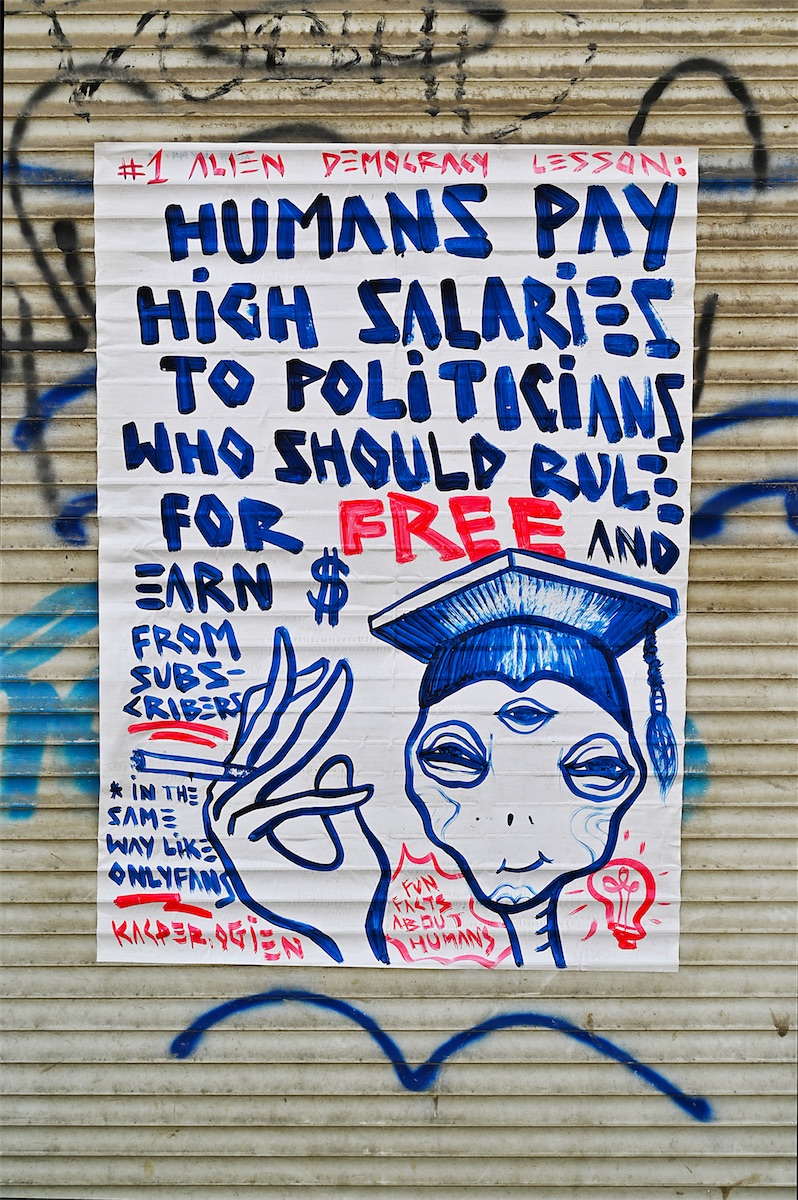 #1 ALIEN DEMOCRACY LESSON:
HUMANS PAY
HiGH SALARiES
TO POLiTiCiANS
WHO SHOULD RULE
FOR FREE AND
EARN $
FROM
SUBS-
CRIBERS
* iN THE
SAME
WAY LiKE
ONLYFANS
KACPER.OGiEN
FUN
FACTS
ABOUT
HUMANS